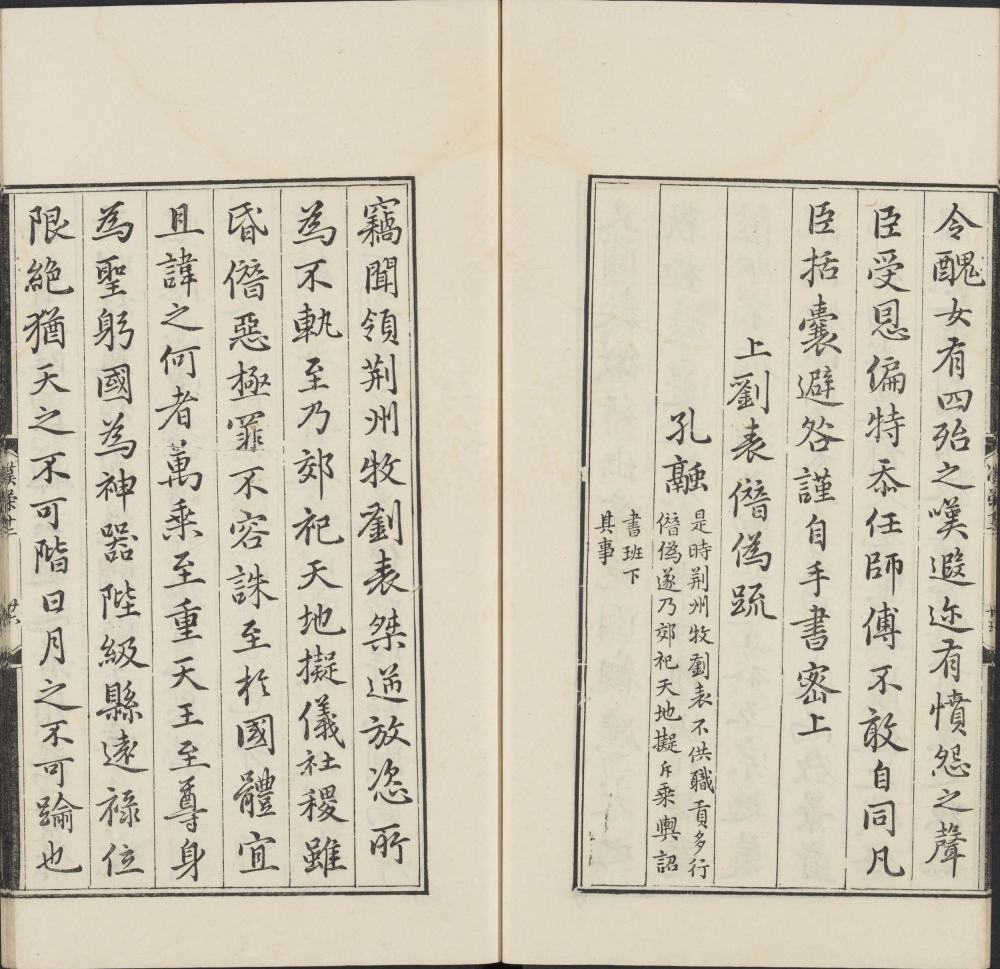 令醜女有四殆之嘆遐迩有憤怨之聲
臣受恩偏特忝任師傅不敢自同凡
臣括囊避咎謹自手書密上
上劉表僭偽疏
孔融
是時荆州牧劉表不供職貢多行
僭偽遂乃郊祀天地擬斥乘輿詔
書班下
其事
竊聞領荆州牧劉表桀逆放恣所
為不軌至乃郊祀天地擬儀社稷雖
昏僭惡極罪不容誅至於國體宜
且諱之何者萬乘至重天王至尊身
為聖躬國為神器陛級縣遠祿位
限絶猶天之不可階日月之不可踰也